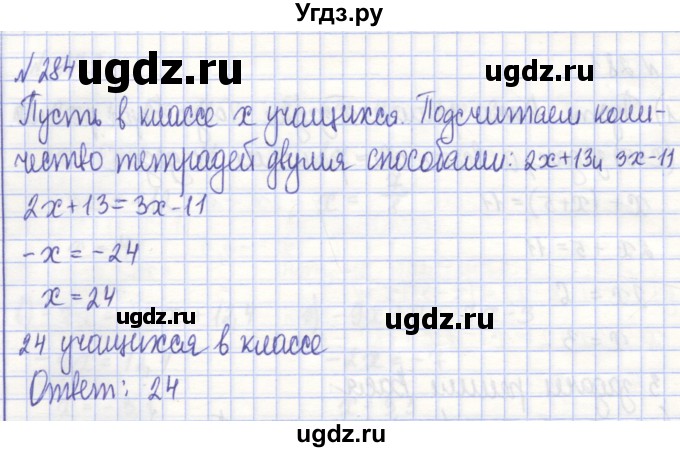 Угдз.ру
№284
ugdz.ru ugdz.ru
Пусть в классе x учащихся. Подсчитаем коли-
чество тетрадей двумя способами: 2x+13 и 3x-11
2x+13=3x-11
-x=-24
x=24
ugdz.ru ugdz.ru
24 учащихся в классе
Ответ: 24
ugdz.ru